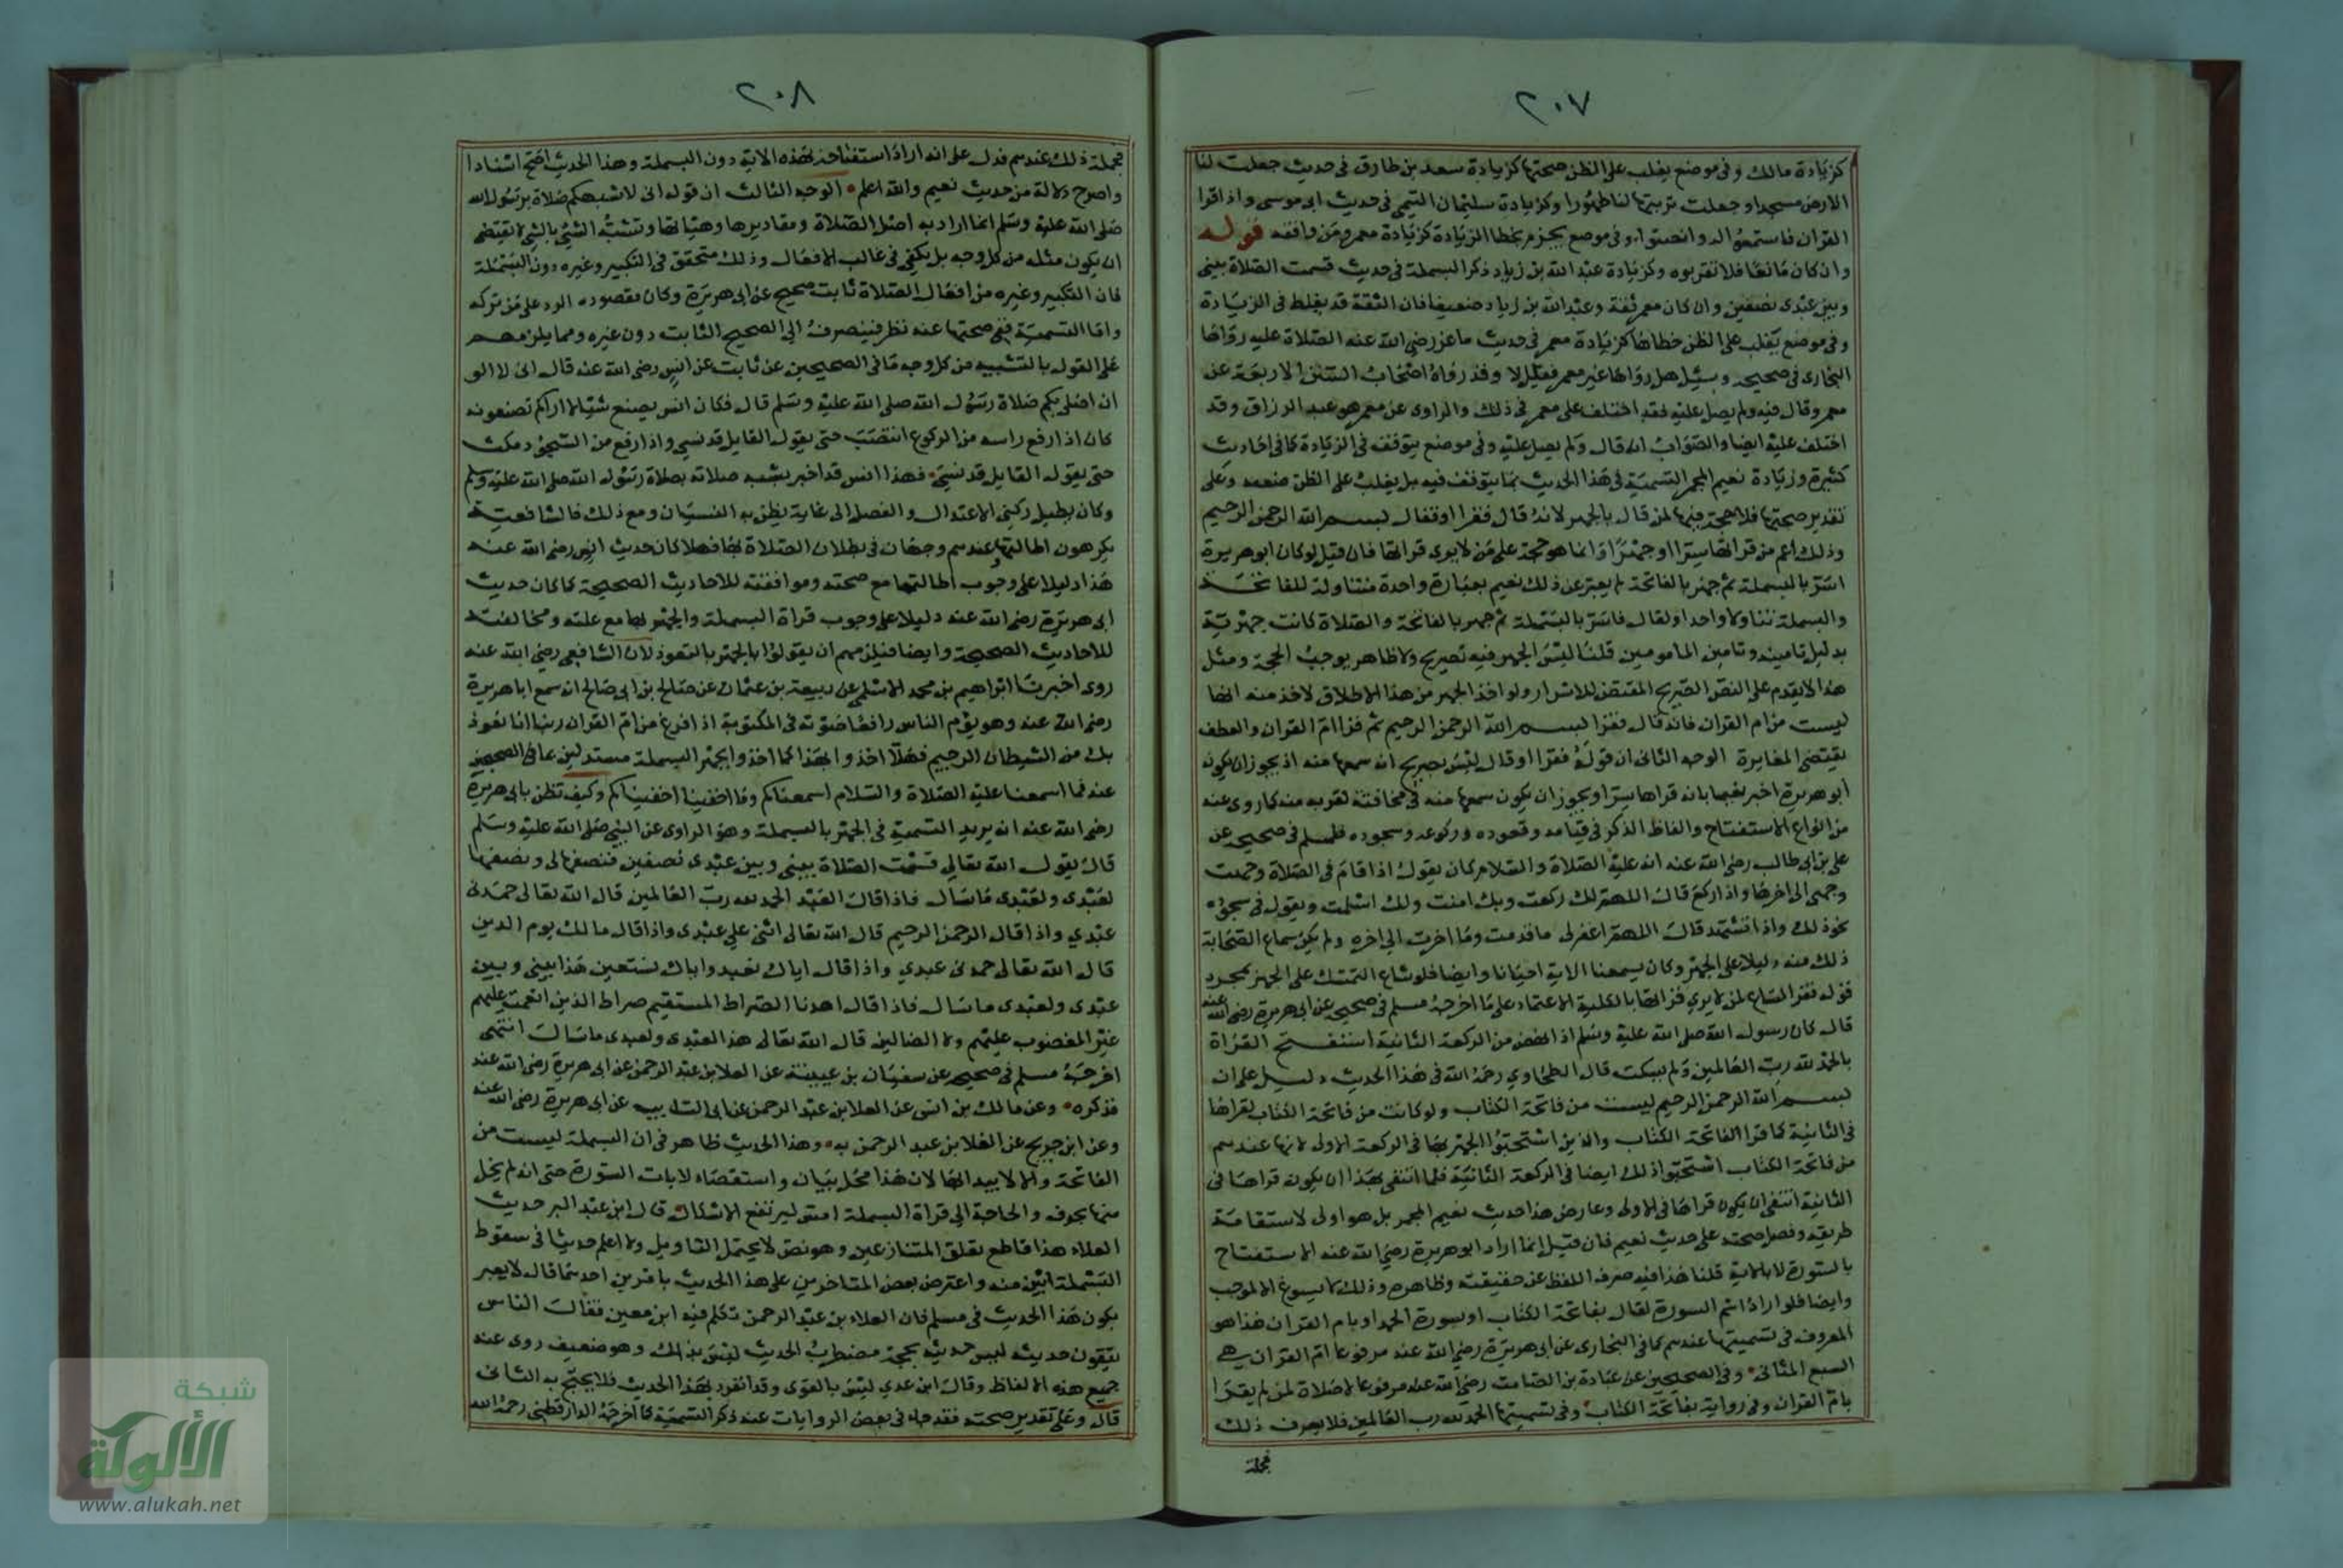 ٢٠٧
كزيادة مالك وفى موضع يغلب على الظن صحتها كزيادة سعد بن طارق فى حديث جعلت لنا
الارض مسجدا وجعلت تربتها لنا طهورا وكزيادة سليمان التيمي فى حديث ابى موسى واذا قرا
القران فاستمعوا له وانصتوا وفى موضع يجزم بخطا الزيادة كزيادة معمر ومن وافقه قوله
وان كان مائعا فلا تقربوه وكزيادة عبد الله بن زياد ذكر البسملة فى حديث قسمت الصلاة بينى
وبين عبدى نصفين وان كان معمر ثقة وعبد الله بن زياد ضعيفا فان الثقة قد يغلط فى الزيادة
وفى موضع يغلب على الظن خطاها كزيادة معمر فى حديث ماعز رضى الله عنه الصلاة عليه رواها
البخارى فى صحيحه وسئل هل رواها غير معمر فقيل لا وقد رواه اصحاب السنن الاربعة عن
معمر وقال فيه ولم يصل عليه فقد اختلف على معمر فى ذلك والراوى عن معمر هو عبد الرزاق وقد
اختلف عليه ايضا والصواب انه قال ولم يصل عليه وفى موضع يتوقف فى الزيادة كما فى احاديث
كثيرة وزيادة نعيم المجمر التسمية فى هذا الحديث مما يتوقف فيه بل يغلب على الظن ضعفه وعلى
تقدير صحتها فلا حجة فيها لمن قال بالجهر لانه قال فقرا او فقال بسم الله الرحمن الرحيم
وذلك اعم من قراتها سرا او جهرا وانما هو حجة على من لا يرى قراتها فان قيل لو كان ابو هريرة
اسر بالبسملة ثم جهر بالفاتحة لم يعبر عن ذلك نعيم بعبارة واحدة متناولة للفاتحة
والبسملة تناولا واحدا ولقال فاسر بالبسملة ثم جهر بالفاتحة والصلاة كانت جهرية
بدليل تامينه وتامين المامومين قلنا ليس الجهر فيه تصريح ولا ظاهر يوجب الحجة ومثل
هذا لا يقدم على النص الصريح المقتضى للاسرار ولو اخذ الجهر من هذا الاطلاق لاخذ منه انها
ليست من ام القران فانه قال فقرا بسم الله الرحمن الرحيم ثم قرا ام القران والعطف
يقتضى المغايرة الوجه الثانى ان قوله فقرا او قال ليس بصريح انه سمعها منه اذ يجوز ان يكون
ابو هريرة اخبر نعيما بانه قراها سرا ويجوز ان يكون سمعها منه فى مخافتته لقربه منه كما روى عنه
من انواع الاستفتاح والفاظ الذكر فى قيامه وقعوده وركوعه وسجوده فلمسلم فى صحيحه عن
على بن ابى طالب رضى الله عنه انه عليه الصلاة والسلام كان يقول اذا قام فى الصلاة وجهت
وجهى الى اخرها واذا ركع قال اللهم لك ركعت وبك امنت ولك اسلمت ويقول فى سجوده
نحو ذلك واذا تشهد قال اللهم اغفر لى ما قدمت وما اخرت الى اخره ولم يكن سماع الصحابة
ذلك منه دليلا على الجهر وكان يسمعنا الاية احيانا وايضا فلو شاع التمسك على الجهر بمجرد
قوله فقرا لساغ لمن لا يرى قراتها بالكلية الاعتماد على ما اخرجه مسلم فى صحيحه عن ابى هريرة رضى الله عنه
قال كان رسول الله صلى الله عليه وسلم اذا نهض من الركعة الثانية استفتح القراة
بالحمد لله رب العالمين ولم يسكت قال الطحاوي رحمه الله فى هذا الحديث دليل على ان
بسم الله الرحمن الرحيم ليست من فاتحة الكتاب ولو كانت من فاتحة الكتاب لقراها
فى الثانية كما قرا الفاتحة الكتاب والذين استحبوا الجهر بها فى الركعة الاولى لانها عندهم
من فاتحة الكتاب استحبوا ذلك ايضا فى الركعة الثانية فلما انتفى بهذا ان يكون قراها فى
الثانية انتفى ان يكون قراها فى الاولى وعارض هذا حديث نعيم المجمر بل هو اولى لاستقامة
طريقه وفضل صحته على حديث نعيم فان قيل انما اراد ابو هريرة رضى الله عنه الاستفتاح
بالسورة لا بالاية قلنا هذا فيه صرف اللفظ عن حقيقته وظاهره وذلك لا يسوغ الا لموجب
وايضا فلو اراد اسم السورة لقال بفاتحة الكتاب او بسورة الحمد او بام القران هذا هو
المعروف فى تسميتها عندهم كما فى البخارى عن ابى هريرة رضى الله عنه مرفوعا ام القران هي
السبع المثانى وفى الصحيحين عن عبادة بن الصامت رضى الله عنه مرفوعا لا صلاة لمن لم يقرا
بام القران وفى رواية بفاتحة الكتاب وفى تسميتها الحمد لله رب العالمين فلا يعرف ذلك
فجملة
٢٠٨
فجملة ذلك عندهم فدل على انه اراد استفتاحه بهذه الاية دون البسملة وهذا الحديث اصح اسنادا
واصرح دلالة من حديث نعيم والله اعلم الوجه الثالث ان قوله انى لاشبهكم صلاة برسول الله
صلى الله عليه وسلم انما اراد به اصل الصلاة ومقاديرها وهيئاتها وتشبه الشئ بالشئ لا يقتضى
ان يكون مثله من كل وجه بل يكفى فى غالب الافعال وذلك متحقق فى التكبير وغيره دون البسملة
فان التكبير وغيره من افعال الصلاة ثابت صحيح عن ابى هريرة وكان مقصوده الرد على من تركه
واما التسمية ففى صحتها عنه نظر فينصرف الى الصحيح الثابت دون غيره ومما يلزمهم
على القول بالتشبيه من كل وجه ما فى الصحيحين عن ثابت عن انس رضى الله عنه قال انى لا الو
ان اصلى بكم صلاة رسول الله صلى الله عليه وسلم قال فكان انس يصنع شيئا لا اراكم تصنعونه
كان اذا رفع راسه من الركوع انتصب حتى يقول القايل قد نسي واذا رفع من السجود مكث
حتى يقول القايل قد نسي فهذا انس قد اخبر بشبه صلاته بصلاة رسول الله صلى الله عليه وسلم
وكان يطيل ركنى الاعتدال والفصل الى غاية يظن به النسيان ومع ذلك فالشافعية
يكرهون اطالتهما عندهم وجهان فى بطلان الصلاة بها فهلا كان حديث انس رضى الله عنه
هذا دليلا على وجوب اطالتهما مع صحته وموافقته للاحاديث الصحيحة كما كان حديث
ابى هريرة رضى الله عنه دليلا على وجوب قراة البسملة والجهر بها مع علته ومخالفته
للاحاديث الصحيحة وايضا فيلزمهم ان يقولوا بالجهر بالتعوذ لان الشافعي رضى الله عنه
روى اخبرنا ابراهيم بن محمد الاسلمي عن ربيعة بن عثمان عن صالح بن ابى صالح انه سمع ابا هريرة
رضى الله عنه وهو يؤم الناس رافعا صوته فى المكتوبة اذا فرغ من ام القران ربنا انا نعوذ
بك من الشيطان الرجيم فهلا اخذوا بهذا كما اخذوا بجهر البسملة مستدلين بما فى الصحيحين
عنه فما اسمعنا عليه الصلاة والسلام اسمعناكم وما اخفينا اخفيناكم وكيف تظن بابى هريرة
رضى الله عنه انه يريد التسمية فى الجهر بالبسملة وهو الراوى عن النبى صلى الله عليه وسلم
قال يقول الله تعالى قسمت الصلاة بينى وبين عبدى نصفين فنصفها لى ونصفها
لعبدى ولعبدى ما سال فاذا قال العبد الحمد لله رب العالمين قال الله تعالى حمدنى
عبدي واذا قال الرحمن الرحيم قال الله تعالى اثنى علي عبدى واذا قال مالك يوم الدين
قال الله تعالى حمدنى عبدي واذا قال اياك نعبد واياك نستعين هذا بينى وبين
عبدى ولعبدى ما سال فاذا قال اهدنا الصراط المستقيم صراط الذين انعمت عليهم
غير المغضوب عليهم ولا الضالين قال الله تعالى هذا لعبدى ولعبدى ما سال انتهى
اخرجه مسلم فى صحيحه عن سفيان بن عيينة عن العلا بن عبد الرحمن عن ابى هريرة رضى الله عنه
فذكره وعن مالك بن انس عن العلا بن عبد الرحمن عن ابى السايب عن ابى هريرة رضى الله عنه
وعن ابن جريج عن العلا بن عبد الرحمن به وهذا الحديث ظاهر فى ان البسملة ليست من
الفاتحة والا لابتدا بها لان هذا محل بيان واستقصاء لايات السورة حتى انه لم يخل
منها بحرف والحاجة الى قراة البسملة امس ليرتفع الاشكال قال ابن عبد البر حديث
العلاء هذا قاطع تعلق المتنازعين وهو نص لا يحتمل التاويل ولا اعلم حديثا فى سقوط
البسملة ابين منه واعترض بعض المتاخرين على هذا الحديث بامرين احدهما قال لا يعبر
بكون هذا الحديث فى مسلم فان العلاء بن عبد الرحمن تكلم فيه ابن معين فقال الناس
يتقون حديثه ليس حديثه بحجة مضطرب الحديث ليس بذاك وهو ضعيف روى عنه
جميع هذه الالفاظ وقال ابن عدي ليس بالقوى وقد انفرد بهذا الحديث فلا يحتج به الثانى
قال وعلى تقدير صحته فقد جاء فى بعض الروايات عنه ذكر التسمية كما اخرجه الدارقطنى رحمه الله
شبكة
الألوكة
www.alukah.net